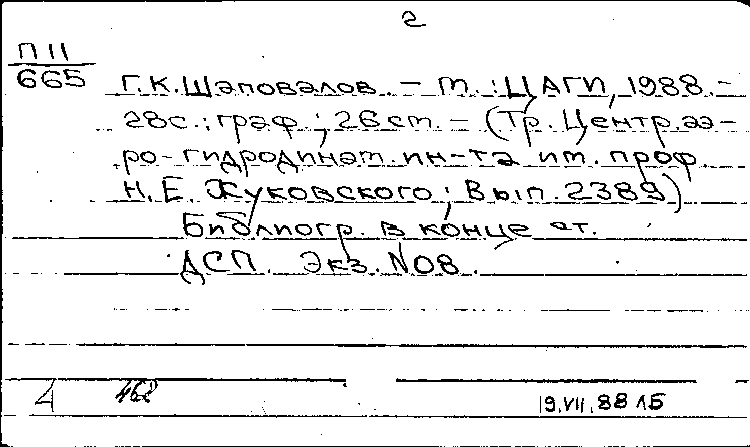 2
П 11
665
Г.К. Шаповалов. – М.: ЦАГИ, 1988. –
28с.: граф.; 26 см. – (Тр. Центр. аэ-
ро-гидродинам. ин-та им. проф.
Н.Е. Жуковского; Вып. 2389)
Библиогр. в конце ст.
ДСП. Экз. N08.
4 468
19.VII.88 ЛБ